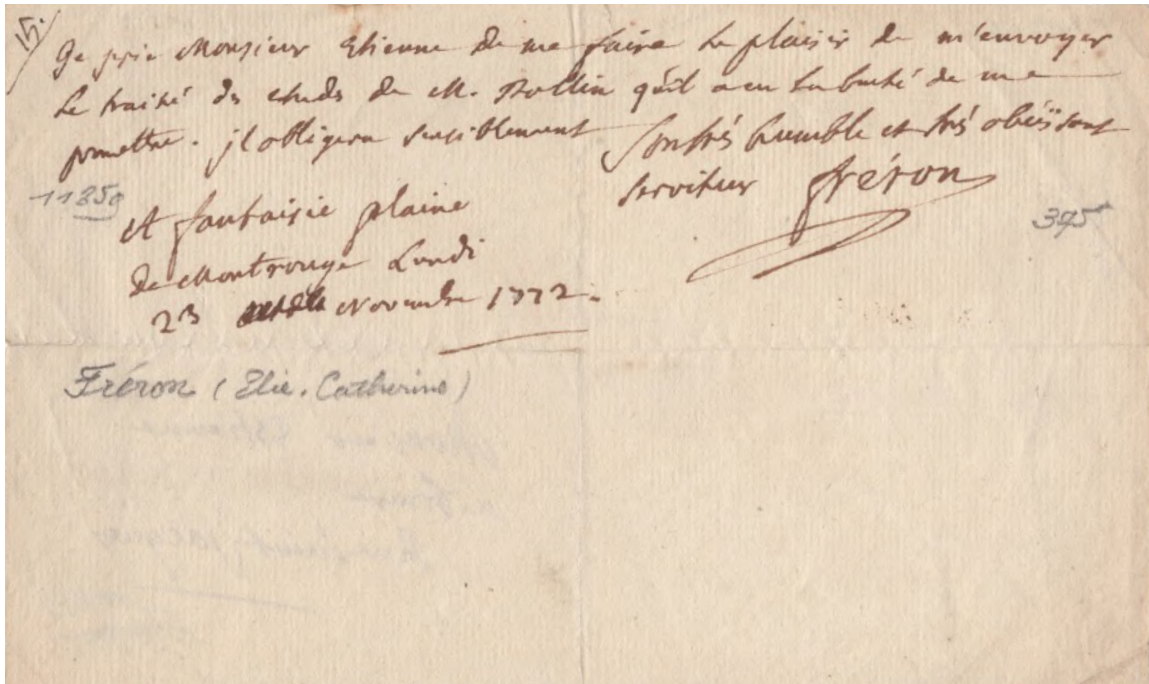 15.
Je prie Monsieur Etienne de me faire le plaisir de m'envoyer
le traité des etudes de M. Rollin qu'il a eu la bonté de me
promettre. jl obligera sensiblement
Son très humble et très obéïssant
serviteur fréron
11850
395
A fantaisie plaine
de Montrouge Lundi
23 Novembre 1772.
Fréron (Elie. Catherine)